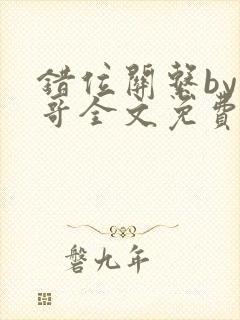 錯位關繫by
哥全文免費
磐九年